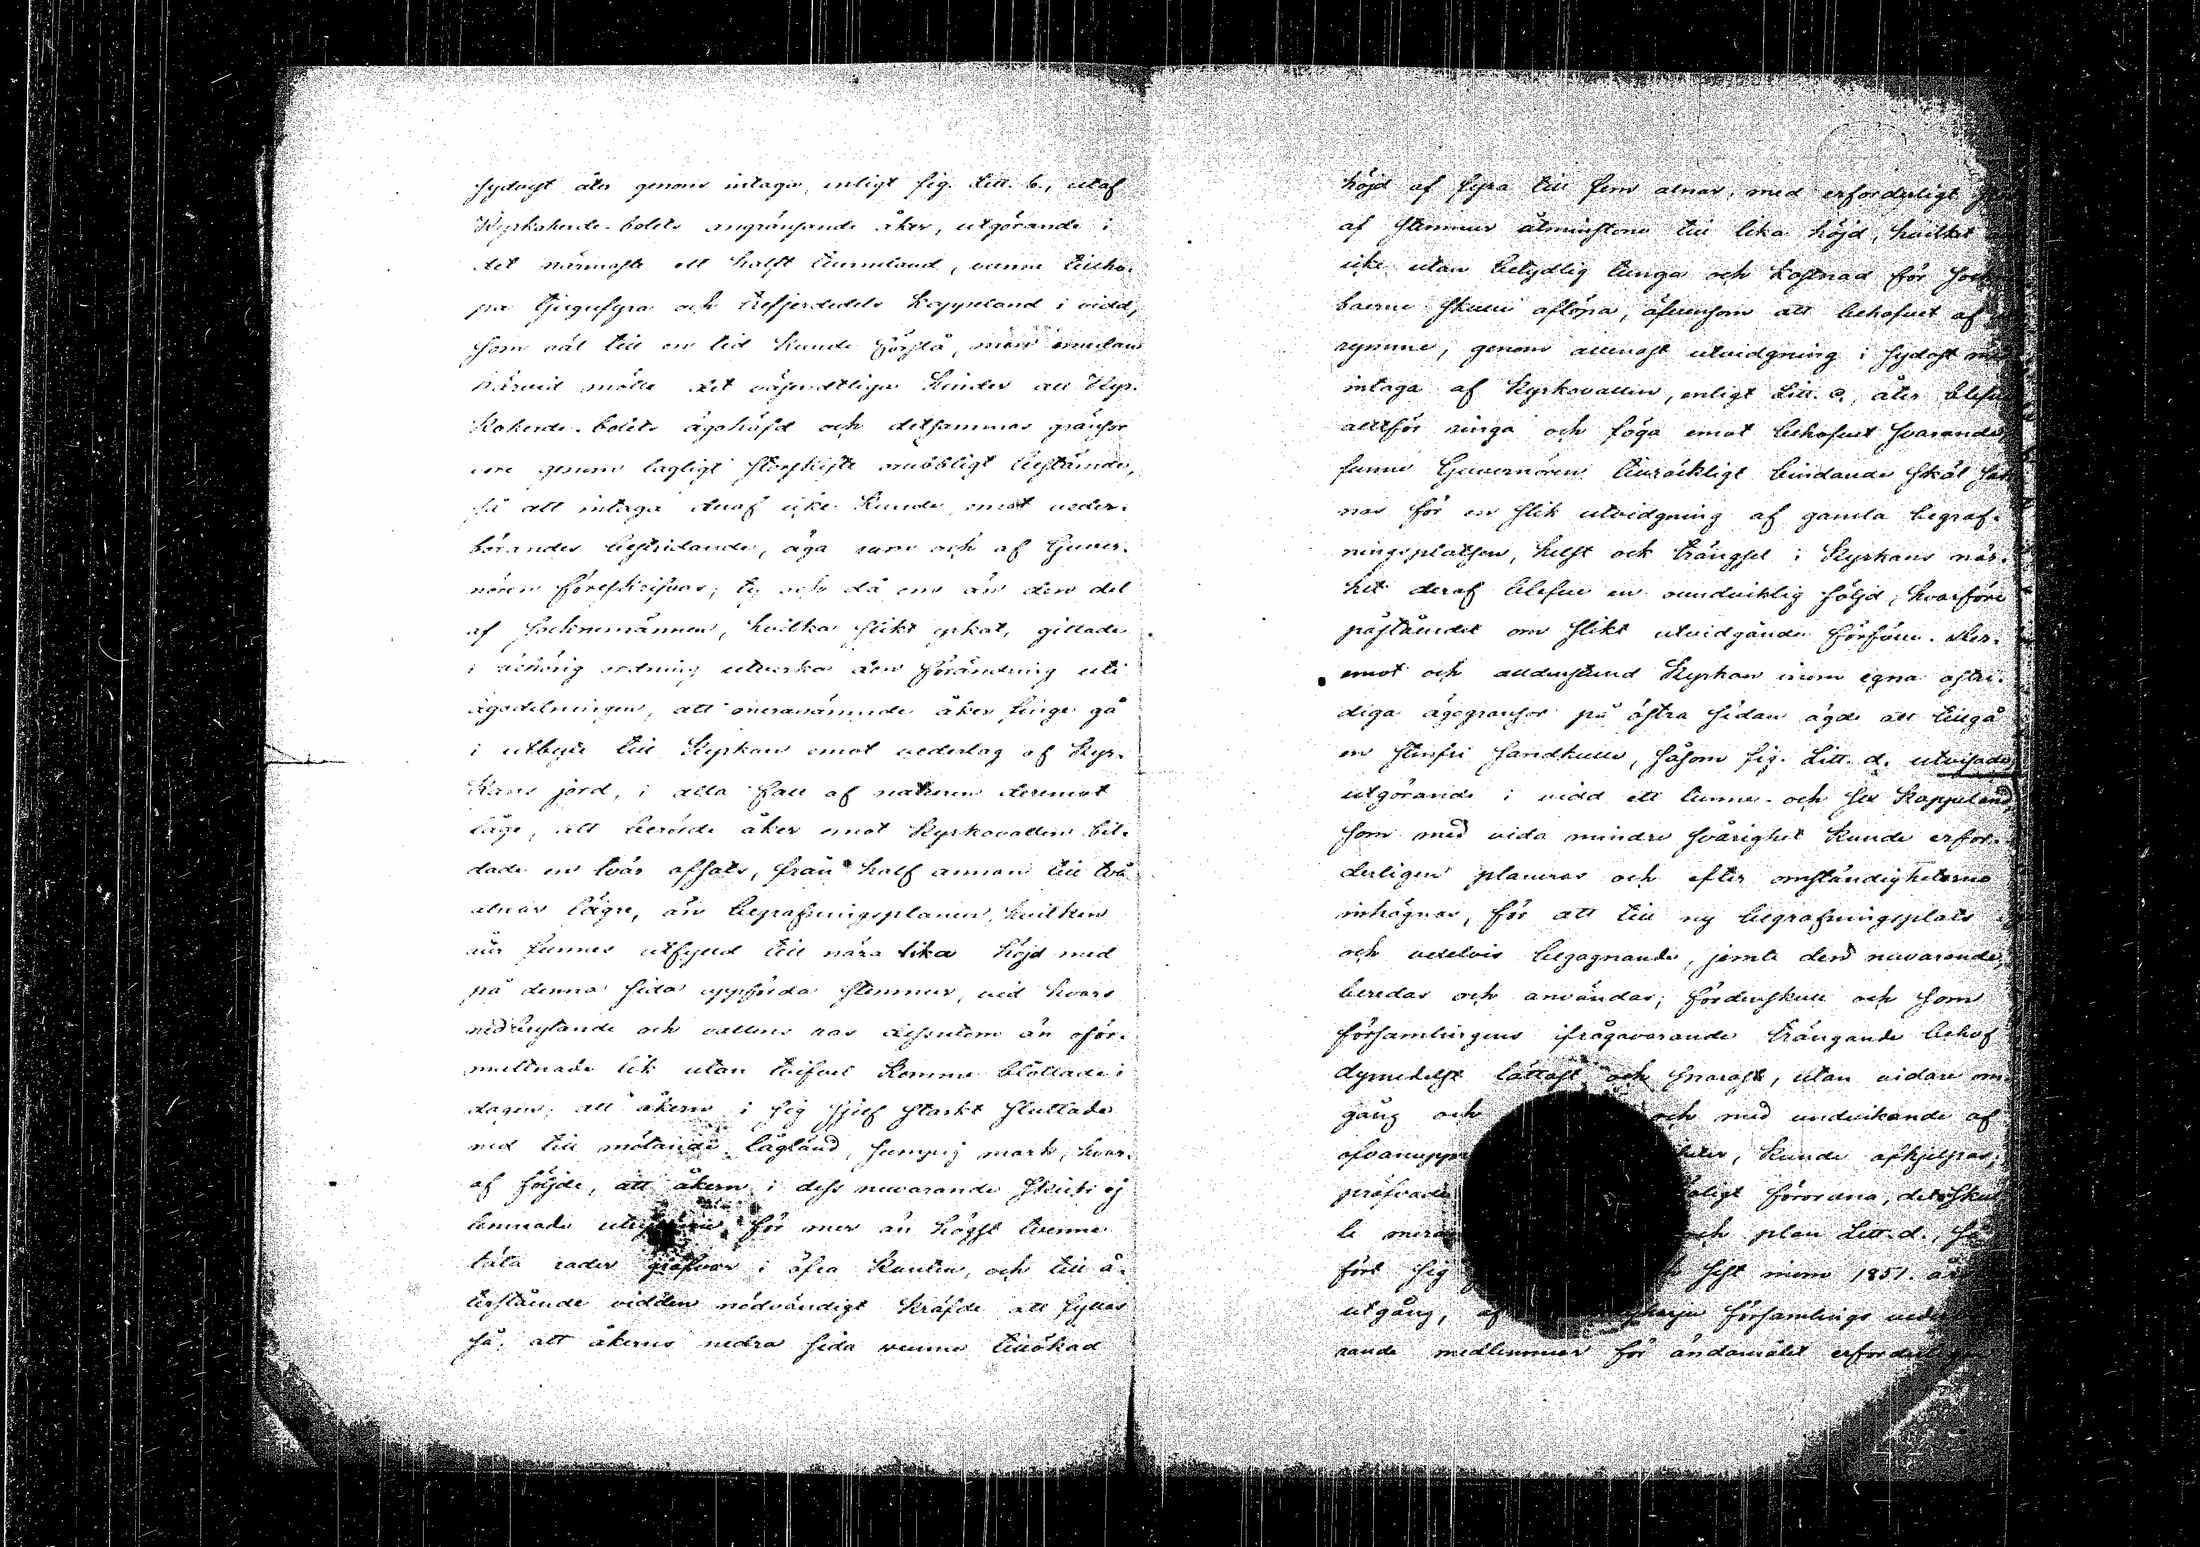 sydost åter genom intaga, enligt fig. Litt. b., utaf
Kyrkoherde-bolets angränsande åker, utgörande i
det närmaste ett halft tunnland, vunne tillho-
pa tjugufyra och trefjerdedels kappeland i vidd,
som väl till en tid kunde förslå, men emedan
härvid mötte det väsendtliga hinder att Kyr-
koherde-bolets ägohäfd och detsammas gränsor
vore genom lagligt storskifte orubbligt bestämde,
så att intaga deraf icke kunde, emot veder-
börandes bestridande, äga rum och af Guver-
nören föreskrifvas; ty och då om än den del
af Socknemännen, hvilka slikt yrkat, gittade
i behörig ordning utverka den förändring uti
ägodelningen, att meranämnde åker finge gå
i utbyte till Kyrkan emot vederlag af Kyr-
kans jord, i alla fall af naturen deremot
låge, att berörde åker emot Kyrkovallen bil-
dade en tvär afsats, från half annan till två
alnar lägre, än begrafningsplanen, hvilken
här funnes utfylld till nära lika höjd med
på denna sida uppförda stenmur, vid hvars
nedbrytande och vallens ras dessutom än oför-
multnade lik utan tvifvel komme blottade i
dagen; att åkern i sig sjelf starkt sluttade
ned till mötande lågländ, sumpig mark, hvar-
af följde, att åkern i dess nuvarande skick ej
lemnade för mer än högst tvenne
täta rader grafvar i öfra kanten, och till å-
terstående vidden nödvändigt kräfde att fyllas
så, att åkerns nedra sida vunne tillökad
höjd af fyra till fem alnar, med erforderligt
af stenmur åtminstone till lika höjd, hvilket
icke utan betydlig tunga och kostnad för
boerne skulle aflöpa, äfvensom att behofvet af
rymme, genom allenast utvidgning i sydost
intaga af Kyrkovallen, enligt Litt. c., åter
alltför ringa och föga emot behofvet svarande,
funne Guvernören tillräckligt bindande skäl
nas för en slik utvidgning af gamla begraf-
ningsplatsen, helst ock trängsel i Kyrkans när-
het deraf blefve en oundviklig följd, hvarföre
påståendet om slikt utvidgande förfölle. Der-
emot och alldenstund Kyrkan inom egna ostri-
diga ägogränsor på östra sidan ägde att tillgå
en stenfri sandkulle, såsom fig. Litt. d. utvisade,
utgörande i vidd ett tunne- och sex kappeland,
som med vida mindre svårighet kunde erfor-
derligen planeras och efter omständigheterna
inhägnas, för att till ny begrafningsplats
och vexelvis begagnande, jemte den nuvarande,
beredas och användas; fördenskull och som
församlingens ifrågavarande trängande behof
dymedelst lättast och snarast, utan vidare om-
gång och och med undvikande af
kunde afhjelpas;
pröfvade förordna, det skul-
le och plan Litt. d.,
fört sig sist inom 1851. års
utgång, af församlings
rande medlemmar för ändamålet